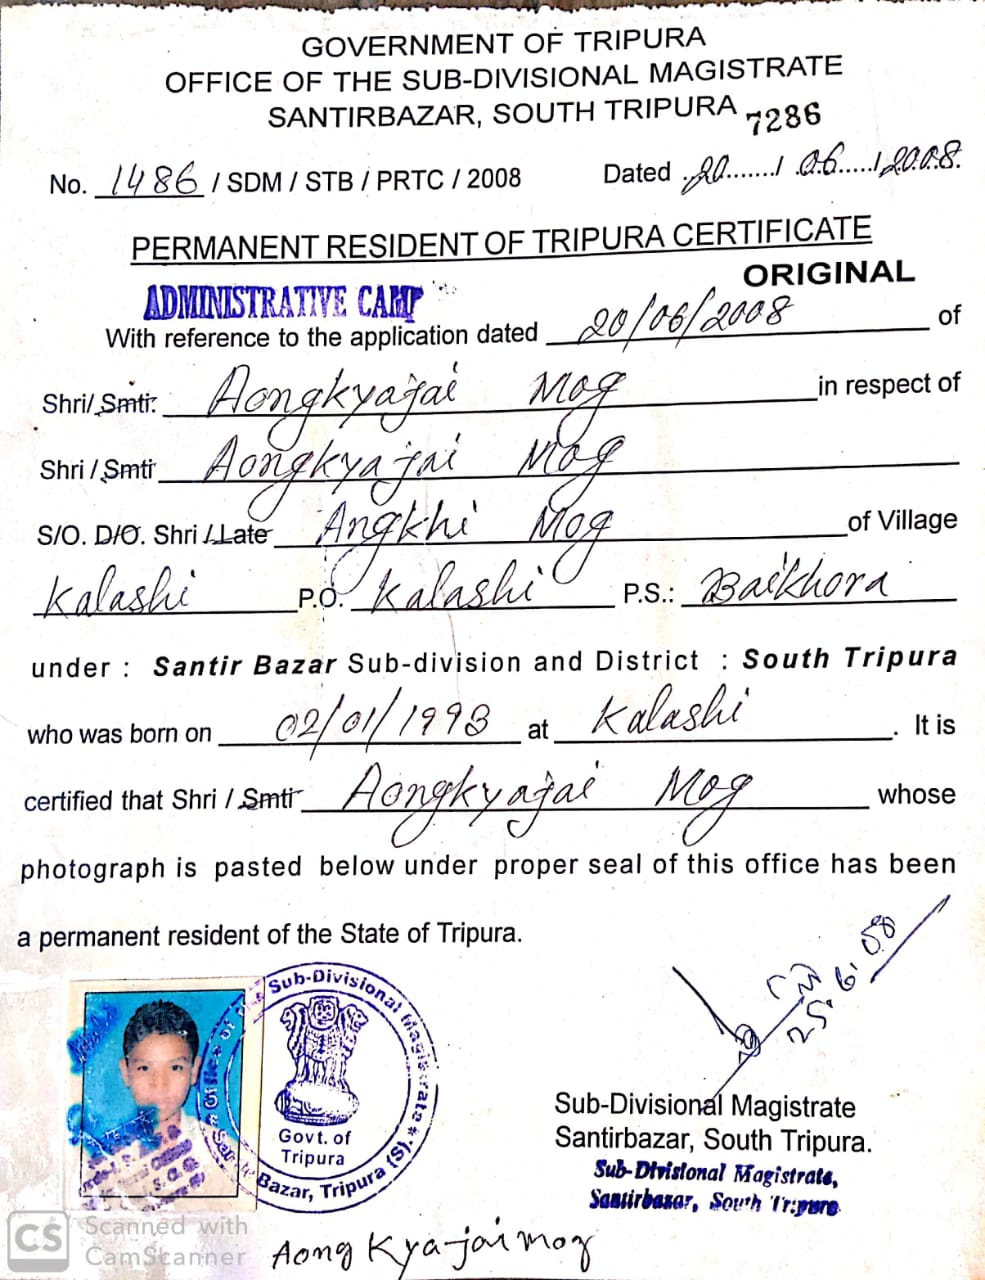 GOVERNMENT OF TRIPURA
OFFICE OF THE SUB-DIVISIONAL MAGISTRATE
SANTIRBAZAR, SOUTH TRIPURA
7286
No. 1486 / SDM / STB / PRTC / 2008 Dated 20......./ 06...../ 2008.
PERMANENT RESIDENT OF TRIPURA CERTIFICATE
ORIGINAL
ADMINISTRATIVE CAMP
With reference to the application dated 20/06/2008 of
Shri/ Smti. Aongkyajai Mog in respect of
Shri / Smti Aongkyajai Mog
S/O. D/O. Shri / Late Angkhi Mog of Village
Kalashi P.O. Kalashi P.S.: Baikhora
under : Santir Bazar Sub-division and District : South Tripura
who was born on 02/01/1993 at Kalashi. It is
certified that Shri / Smti Aongkyajai Mog whose
photograph is pasted below under proper seal of this office has been
a permanent resident of the State of Tripura.
25.6.08
Office of the Sub-Divisional Magistrate
Govt. of
Tripura
Bazar, Tripura (S)
Sub-Divisional Magistrate
Santirbazar, South Tripura.
Sub-Divisional Magistrate,
Santirbazar, South Tripura
Aong Kyajai mog
CS Scanned with
CamScanner